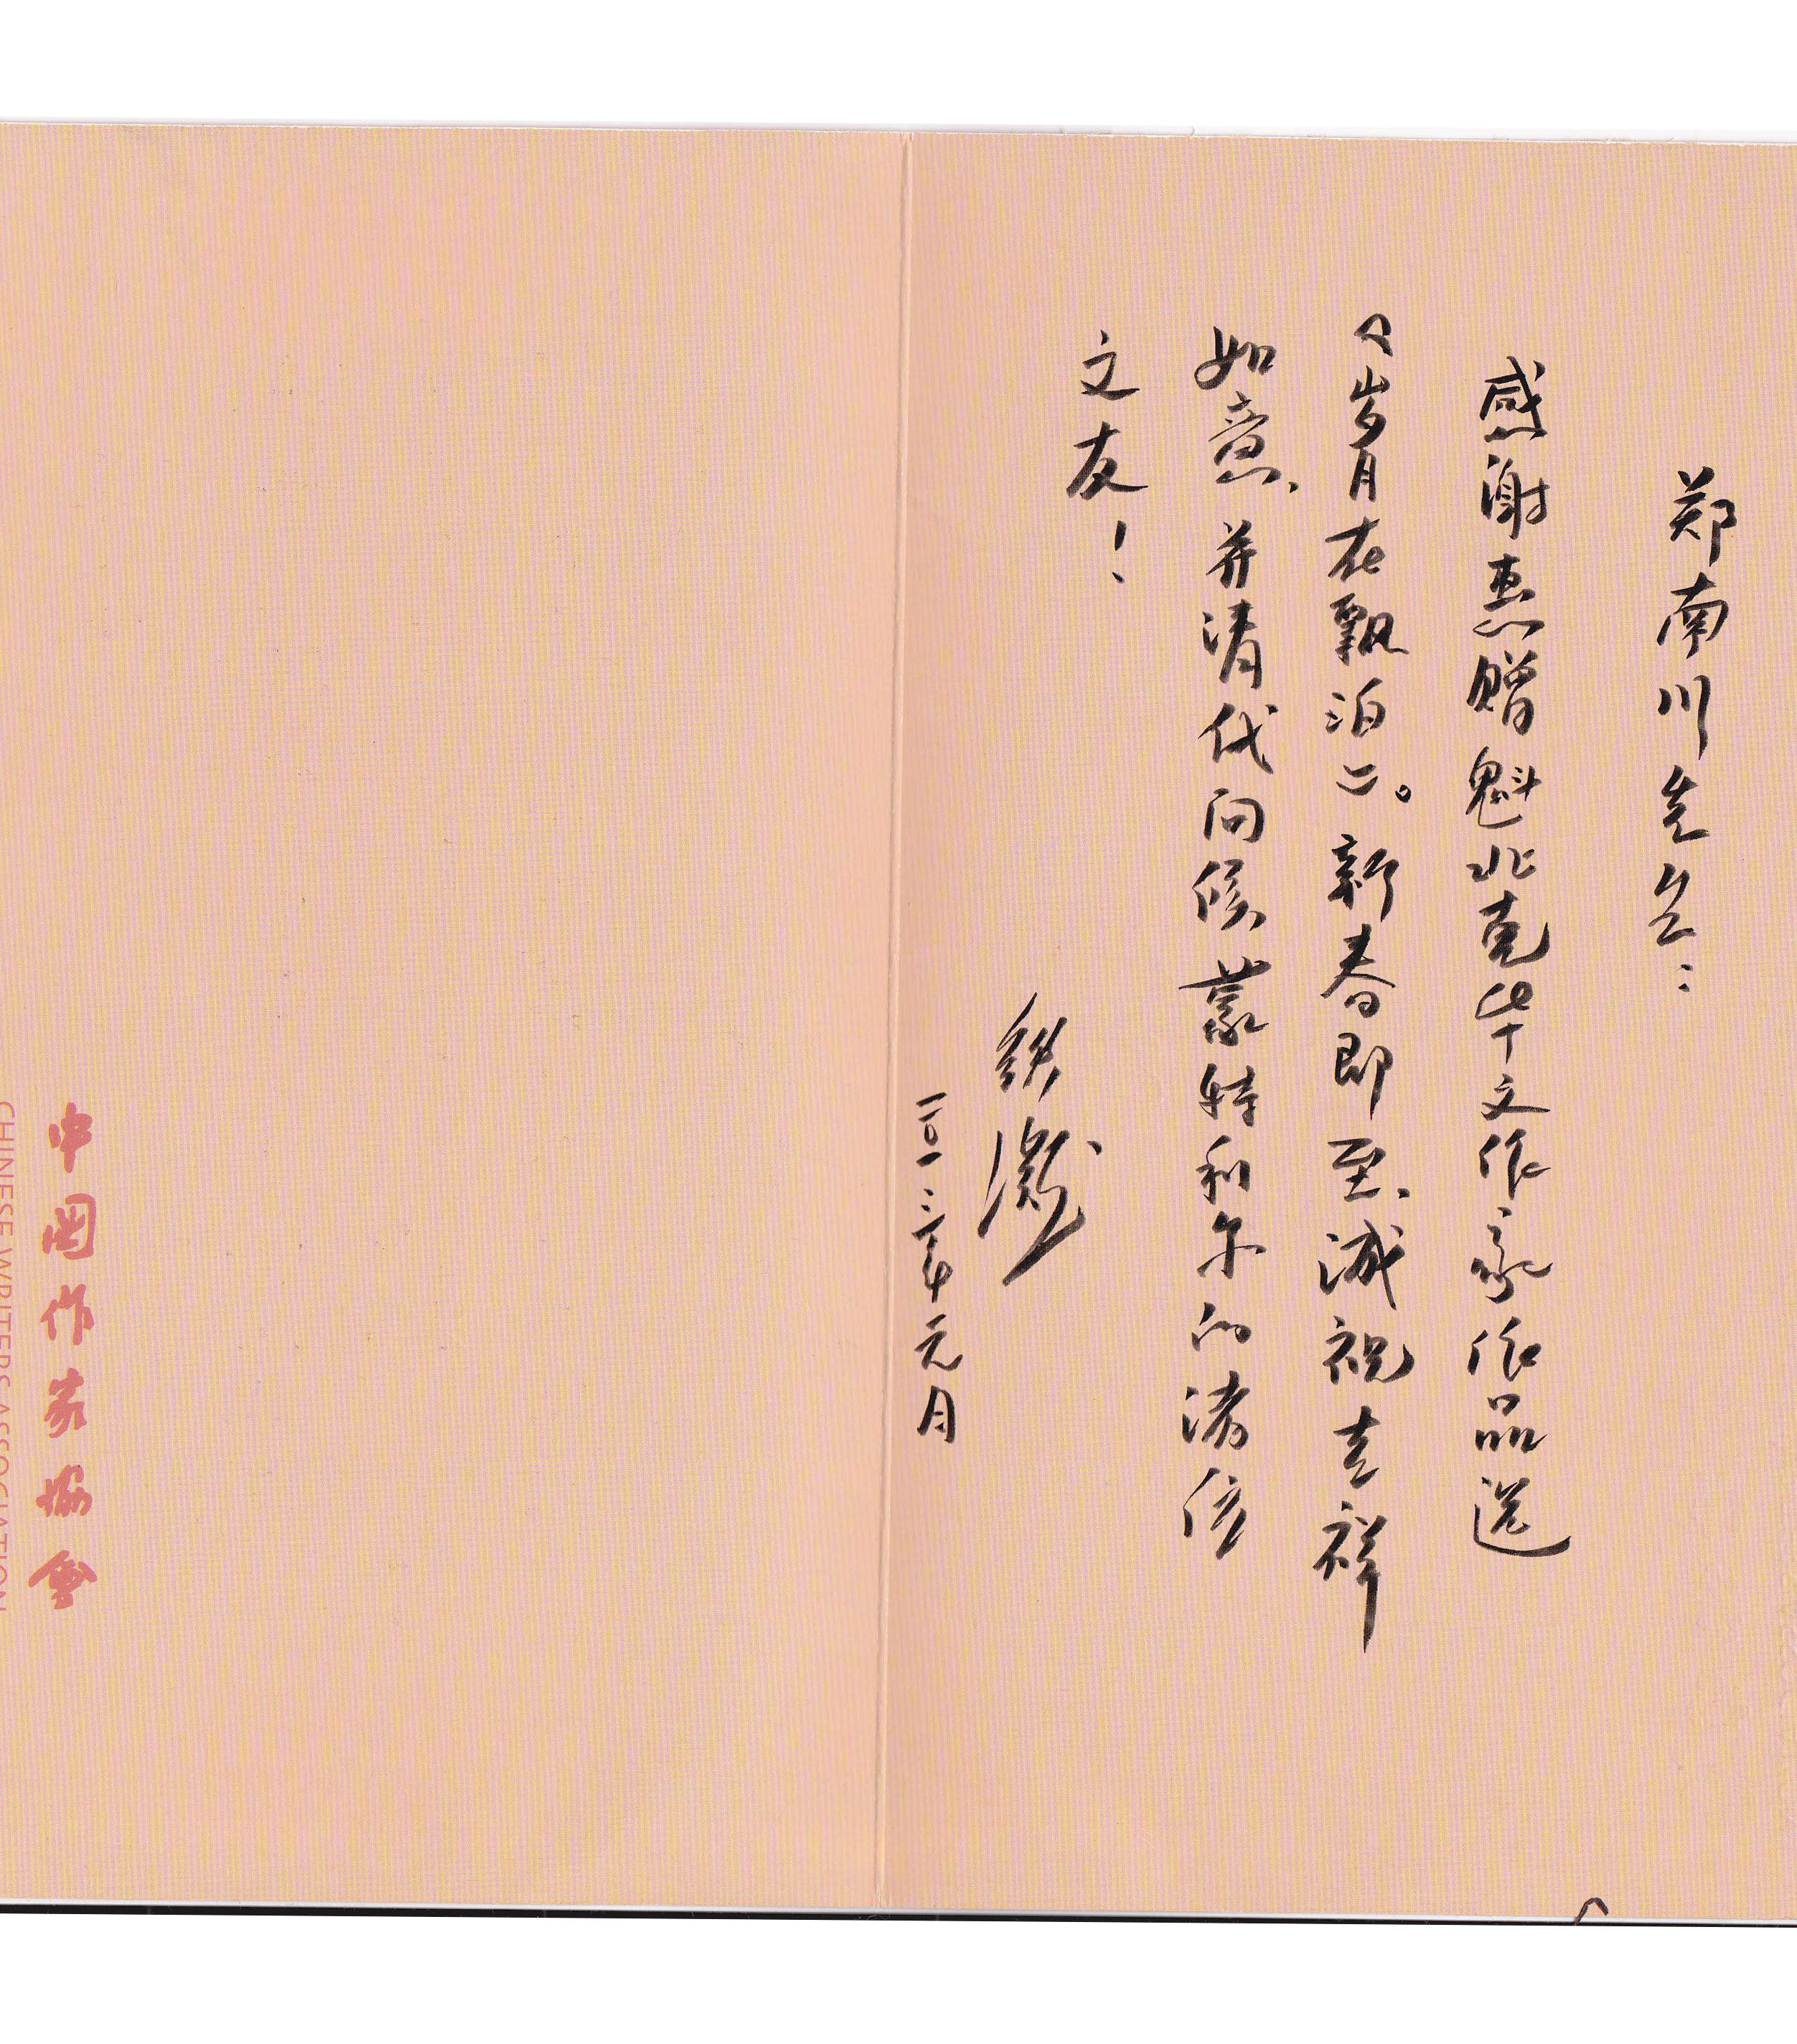 郑南川先生：
感谢惠赠魁北克华文作家作品选
《岁月在飘泊》。新春即至、诚祝吉祥
如意、并请代问候蒙特利尔的诸位
文友！
铁凝
二〇一二年元月
中国作家协会
CHINESE WRITERS ASSOCIATION